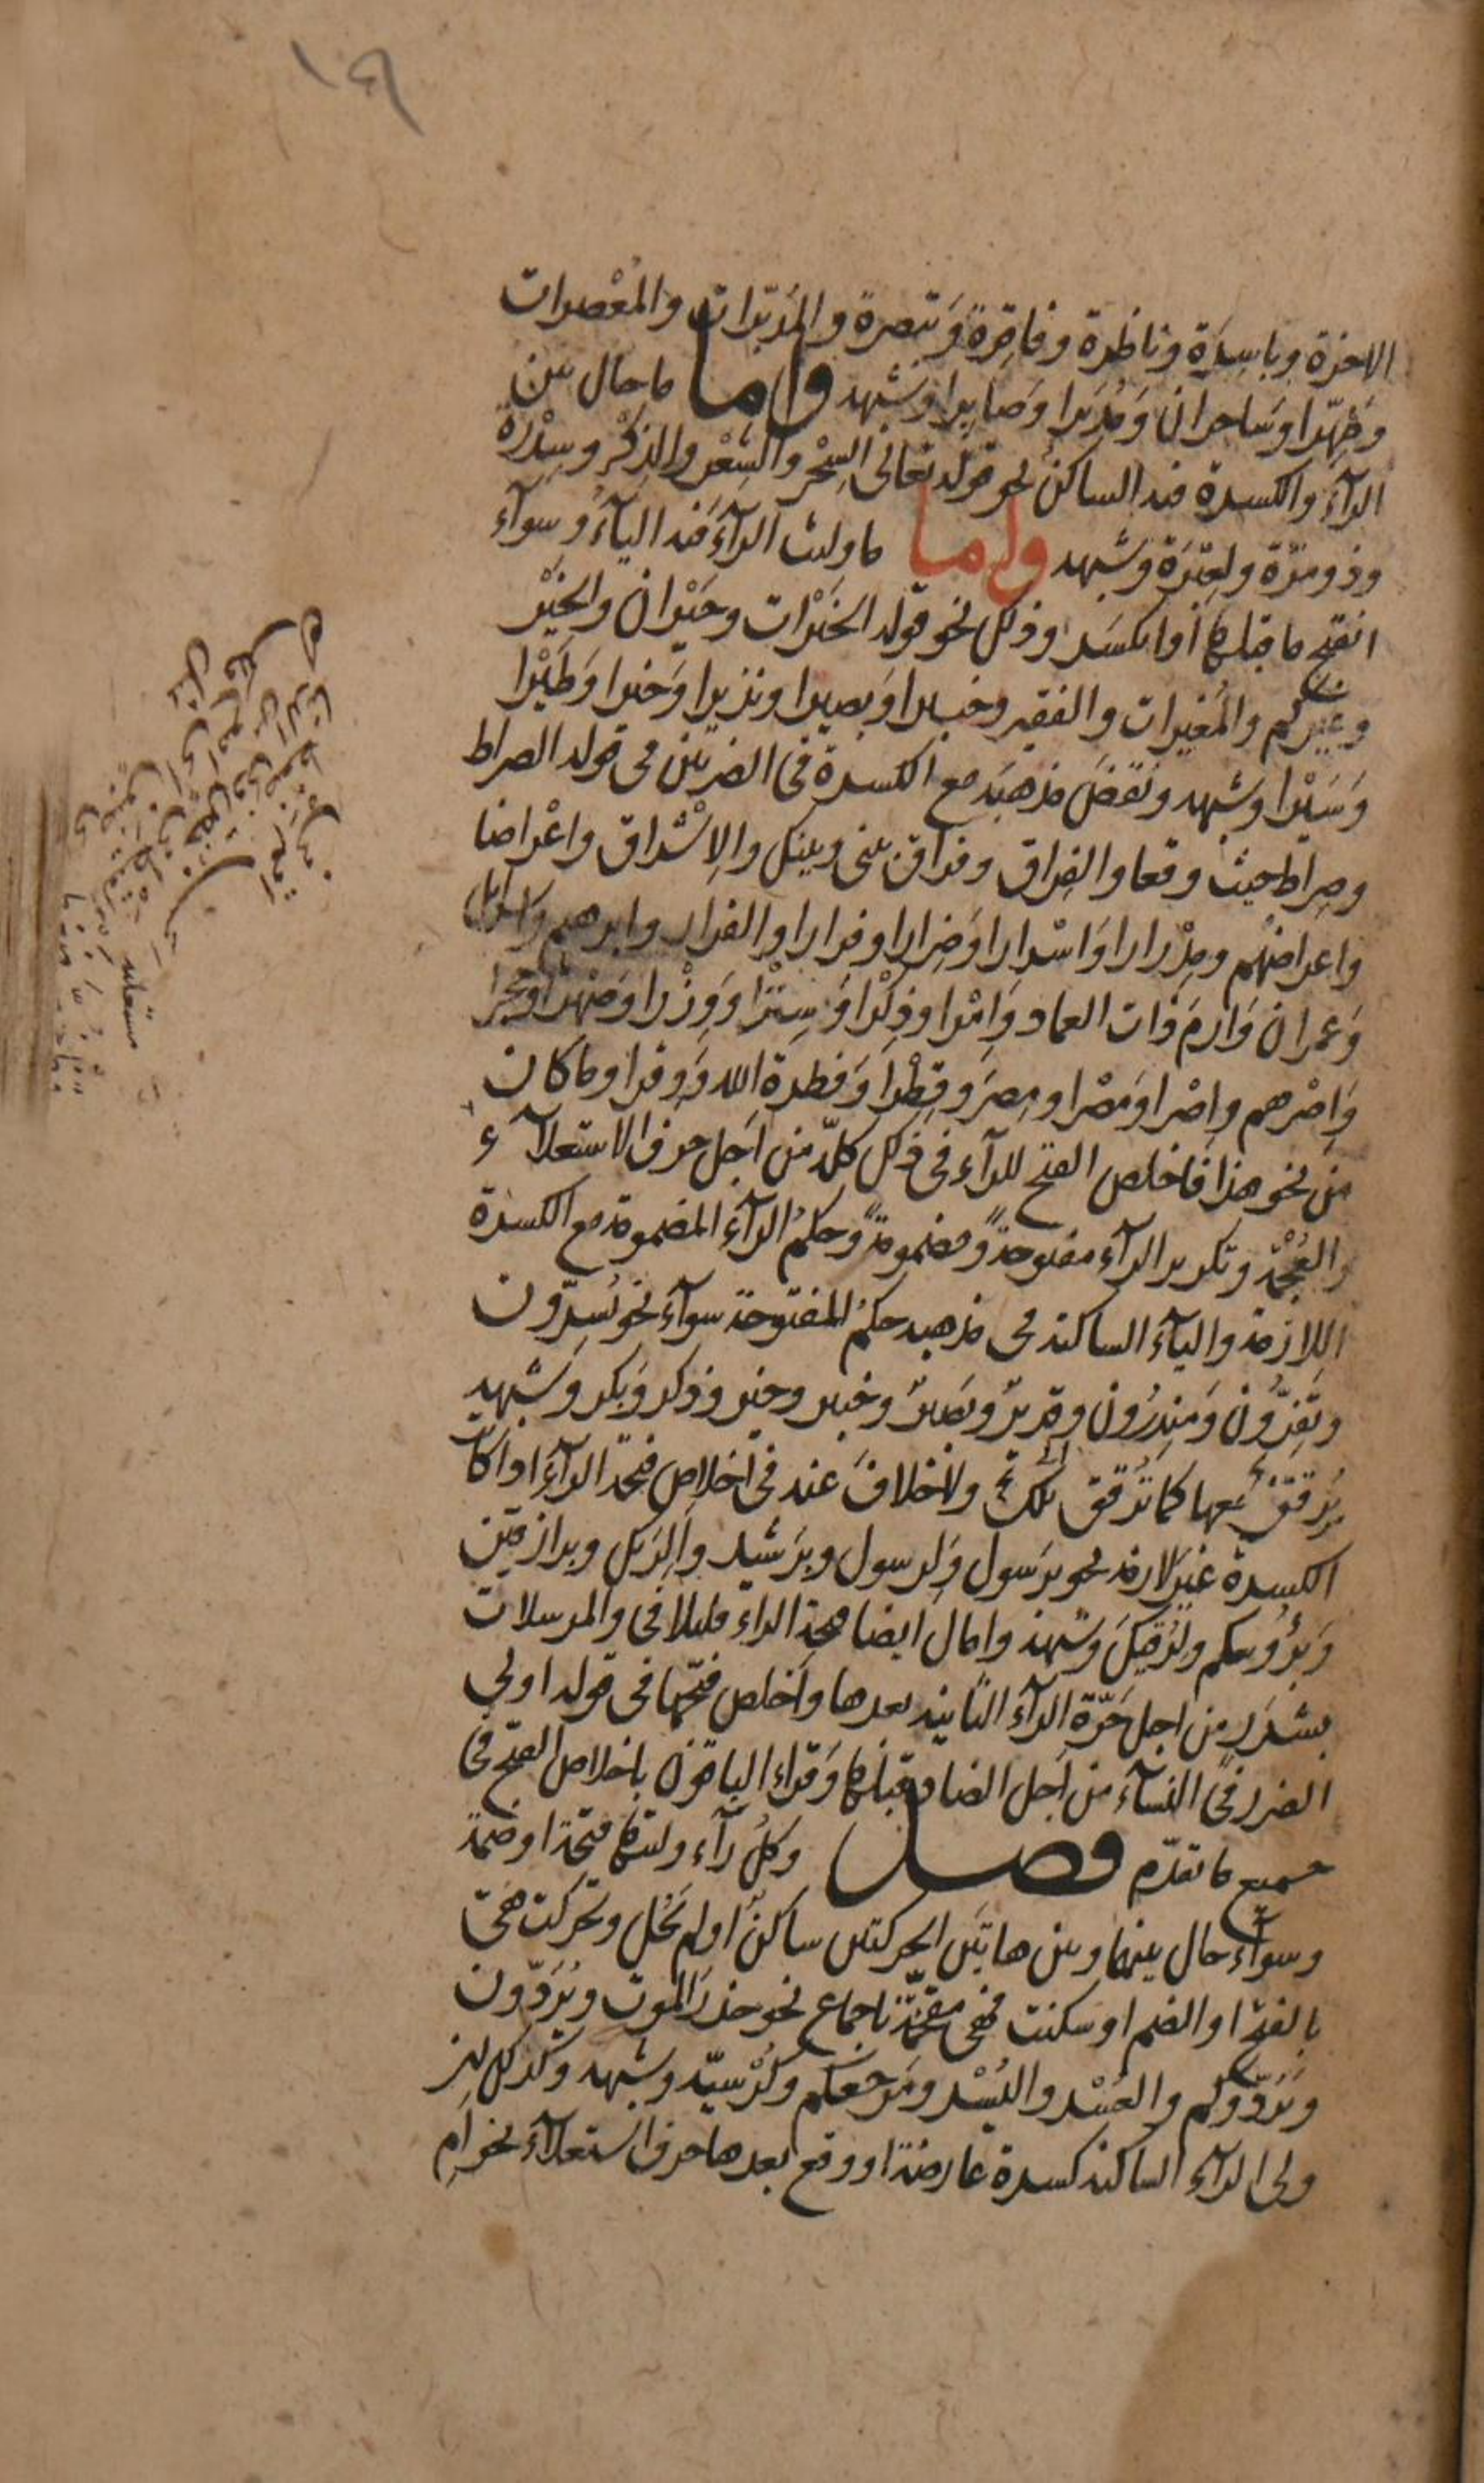 ١٤٩
الاخرة وباسِرَة وناظرة وفاقِرَةٌ وَتبصرة والمُدَبّرات والمُعْصرات
وطَهّرا وسَاحران وَمُدبرا وَصابِرا وَشبهه واما ما حال بين
الرآء والكسرة فيه الساكنُ نحو قوله تعالى السِّحْر والشِعْر والذِكْر وسِدْرة
وذو مِرّة ولعِبْرَة وَشبهه واما ما وليت الرآءَ فيه اليآءُ وسوآء
انفتح ما قبلها أوانكسَر وذلك نحو قوله الخَيْرات وحَيْران والخَيْر
وغيركم والمُغيرات والفقير وخبيرا وَبصيرا ونذيرا وَخيرا وَطَيْرا
وَسَيْرا وشبهه ونقضَ مذهبَه مع الكسرة في الضربين في قوله الصراط
وصِراط حيث وقعا والفِراق وفراق بيني وبينك والاِشْراق واعْراضا
واعراضهُم ومِدْرارا وَاسْرارا وَضِرارا وفِرارا والفرار وابرهيم واسرآئل
وَعمران وَارم ذات العماد وَاِمْرا وذِكْرا وَسِتْرًا وَوِزْرا وَصهْرًا وحِجْرا
وَاِصْرهم واِصْرا وَمِصْرا ومِصرَ وقِطْرا وَفطرة الله وَوقرا وما كان
من نحو هذا فاخلص الفتح للرآء في ذلك كلّه من اَجل حرف الاستعلآء
والعُجْمة وتكرير الرآء مفتوحةً ومضمومةً وحكمُ الرآء المضمومة مع الكسرة
اللازمة واليآء الساكنة في مذهبه حكمُ المفتوحة سوآء نحو يُسِرّون
وتَفِرُّون وَمنذِرُون وقديرٌ وبَصيرٌ وخبير وخير وذكر وَبكر وَشبهه
يُرققُ معها كما تُرقق تلك ولاخلافَ عنه في اخلاص فتحة الرآءَ اذا كانت
الكسرة غيرَ لازمة نحو برَسول وَلِرسول وبرَشيد واَلِرَبك وبرازقين
وَبرُؤوسكم ولِرُقِيّكَ وشبهه وامال ايضا فتحة الراء قليلا في والمرسلات
بشَرَرٍ من اجل جَرّة الرآء الثانية بعدها واَخلص فتحَها في قوله اولي
الضرر في النسآء من اَجل الضاد قبلها وَقراء الباقون باخلاص الفتح في
جميع ما تقدّم فصل وكلُ رآء وليتها فتحة او ضمة
وسوآء حال بينها وبين هاتين الحركتين ساكنٌ اولم يَحُل وتحركت هيَ
بالفتح او الضم او سكنت فهي مفخمةٌ باجماع نحو حذرَ الموت ويُرَدّون
وَيَرُدّوكم والعُسْر واليُسْر ومَرجعكم وكُرْسيّه وشبهه وكذلك اِن
ولي الرآء الساكنة كسرة عارضة او وقع بعدها حرف استعلآء نحو امِ